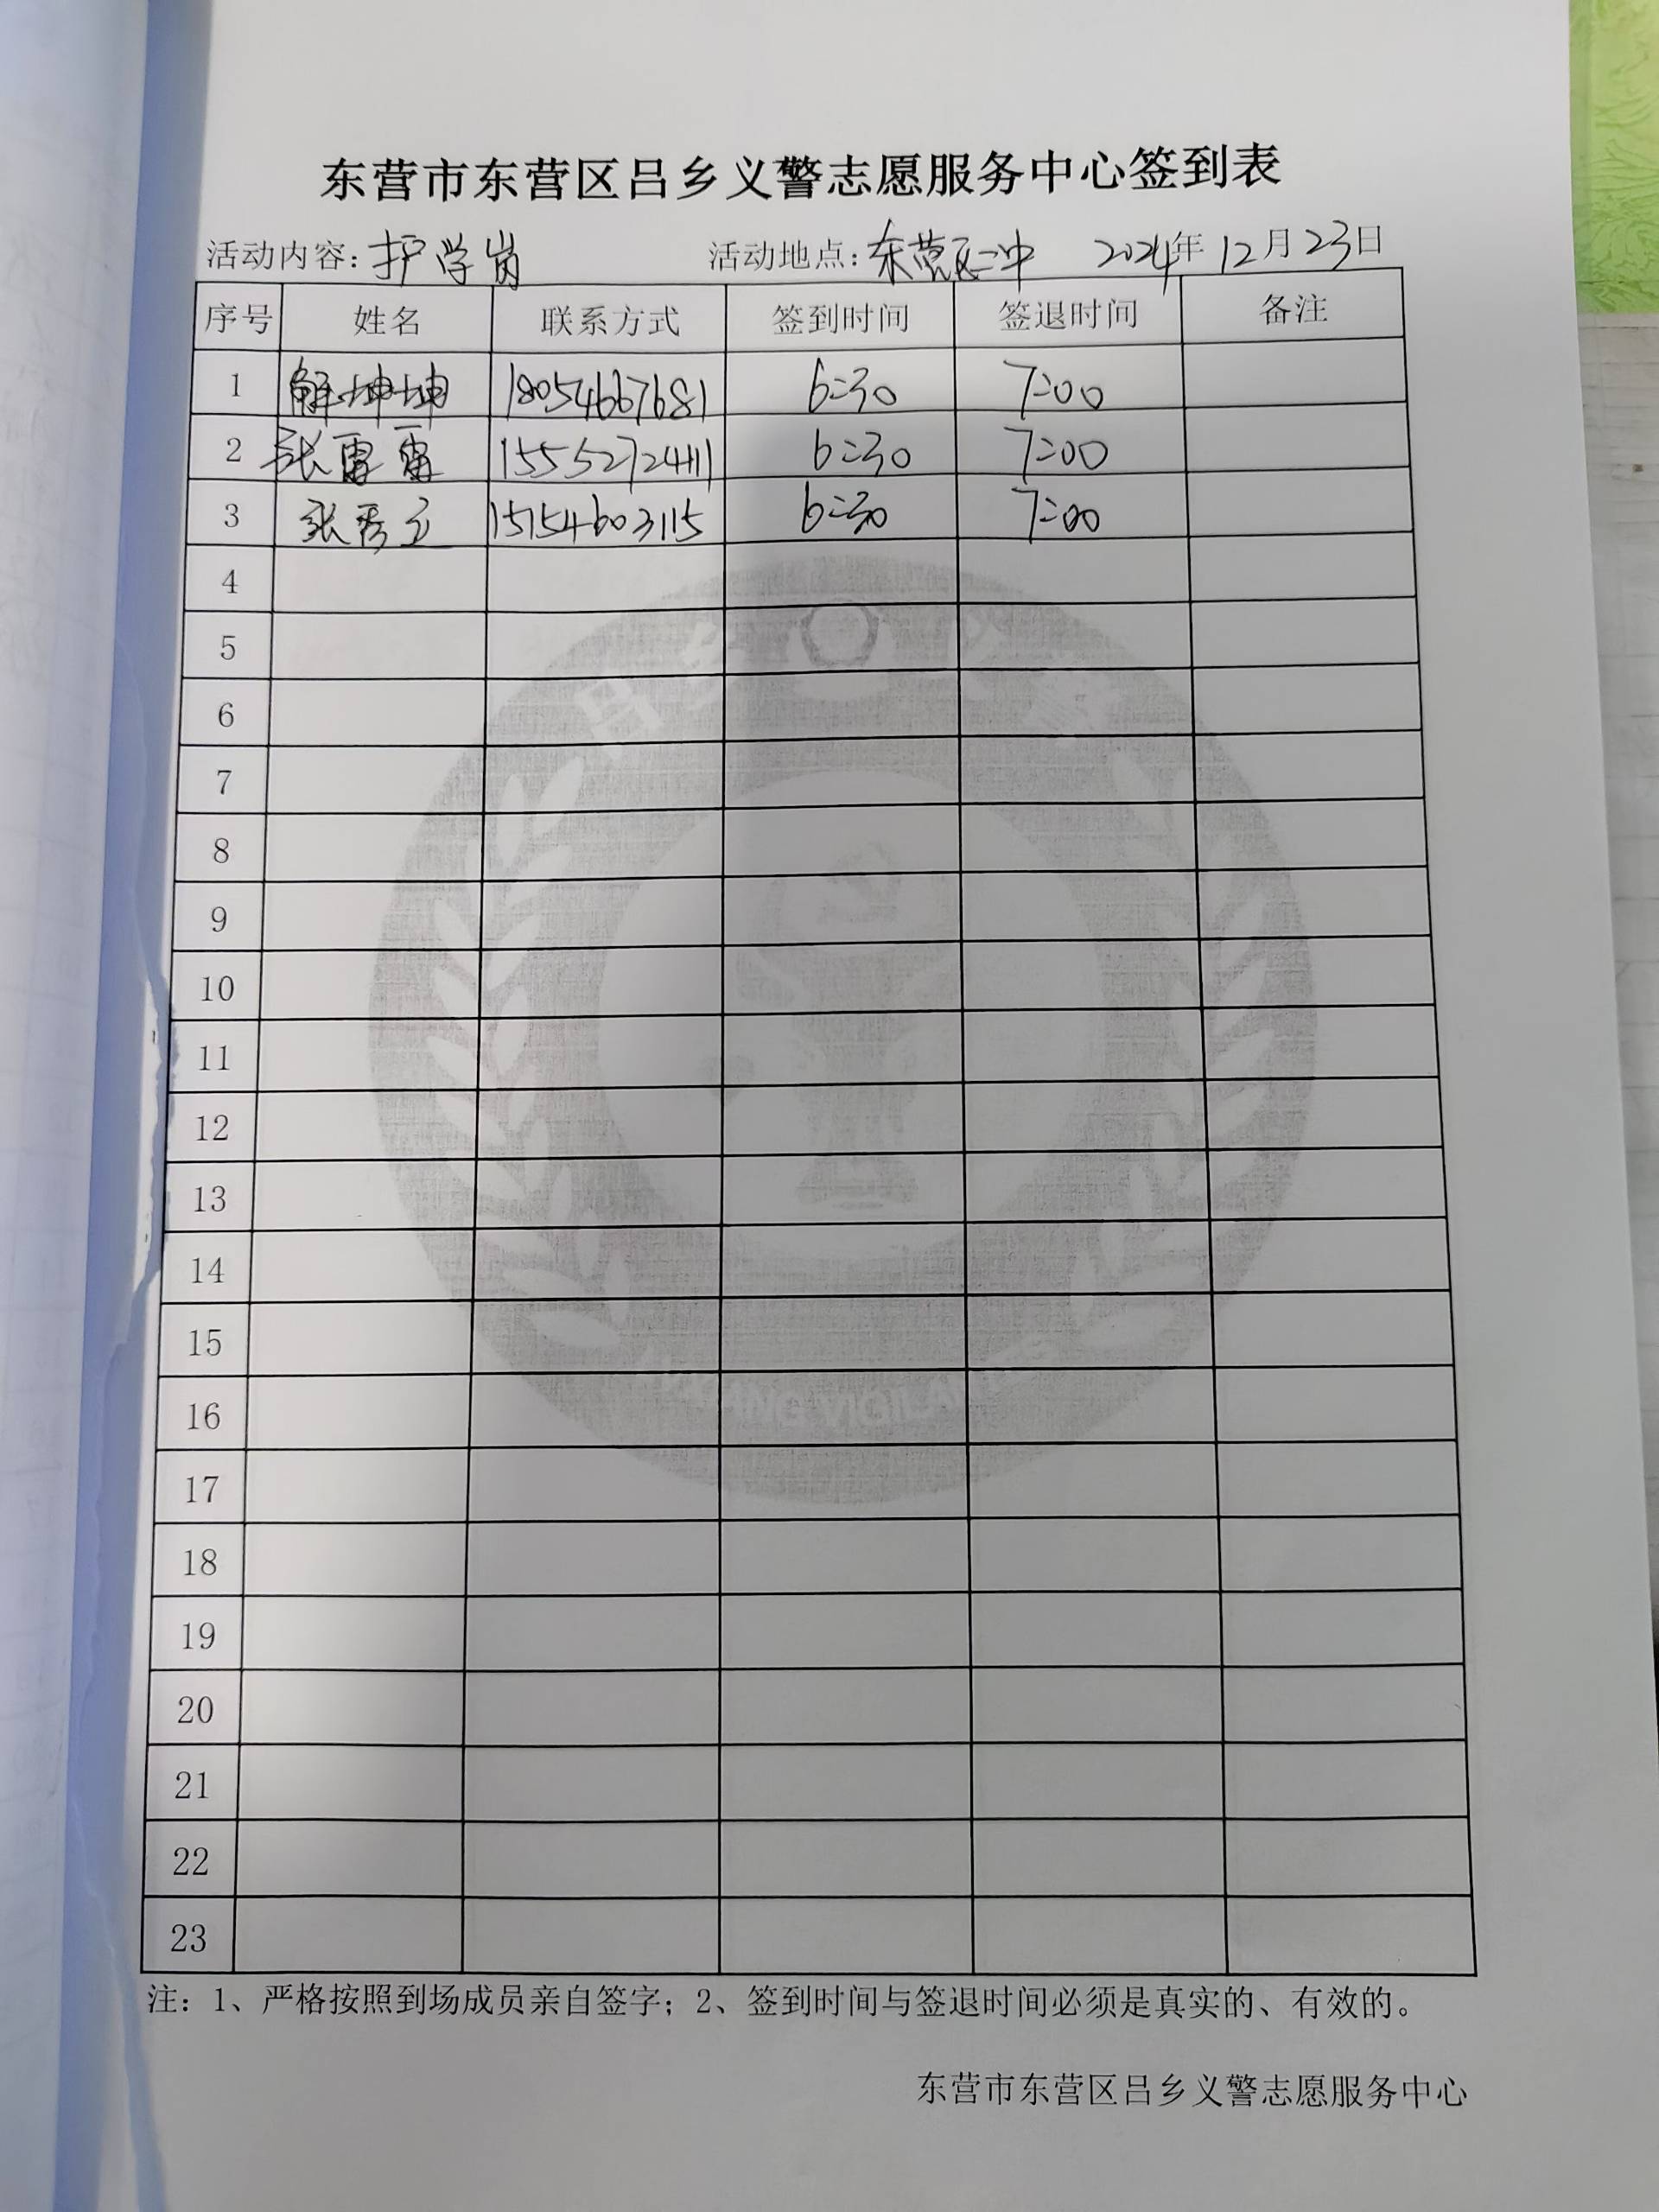 东营市东营区吕乡义警志愿服务中心签到表
活动内容:护学岗 活动地点:东营区二中 2024年12月23日
序号 姓名 联系方式 签到时间 签退时间 备注
1 解坤坤 18054667681 6:30 7:00
2 张雷雷 15552724111 6:30 7:00
3 张秀立 15154603115 6:30 7:00
4
5
6
7
8
9
10
11
12
13
14
15
16
17
18
19
20
21
22
23
注：1、严格按照到场成员亲自签字；2、签到时间与签退时间必须是真实的、有效的。
东营市东营区吕乡义警志愿服务中心